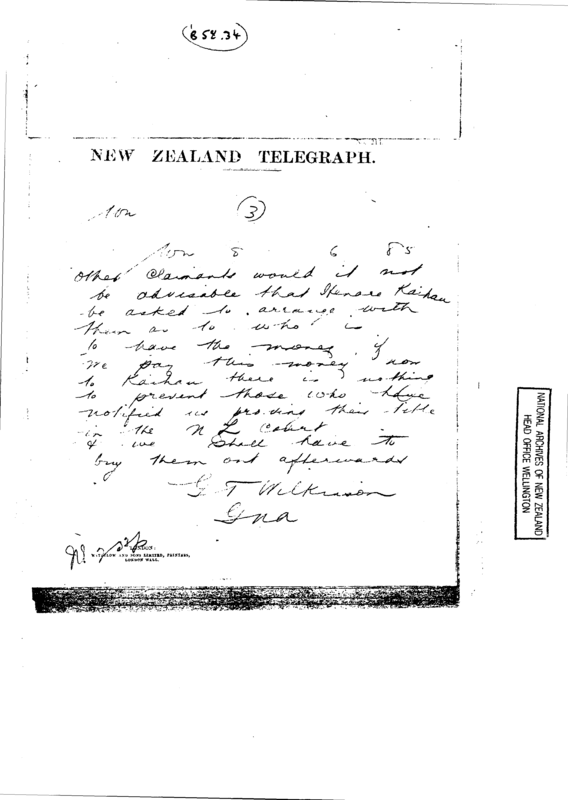 B 58.34
NEW ZEALAND TELEGRAPH.
3
8 6 85
Other Claimants would it not
be advisable that Henare Kaihau
be asked to arrange with
them as to who is
to have the money if
we pay this money now
to Kaihau there is nothing
to prevent those who have
notified us proving their title
in the N L Court
& we shall have to
buy them out afterwards
G T Wilkinson
LONDON:
WATERLOW AND SONS LIMITED, PRINTERS,
LONDON WALL.
NATIONAL ARCHIVES OF NEW ZEALAND
HEAD OFFICE WELLINGTON